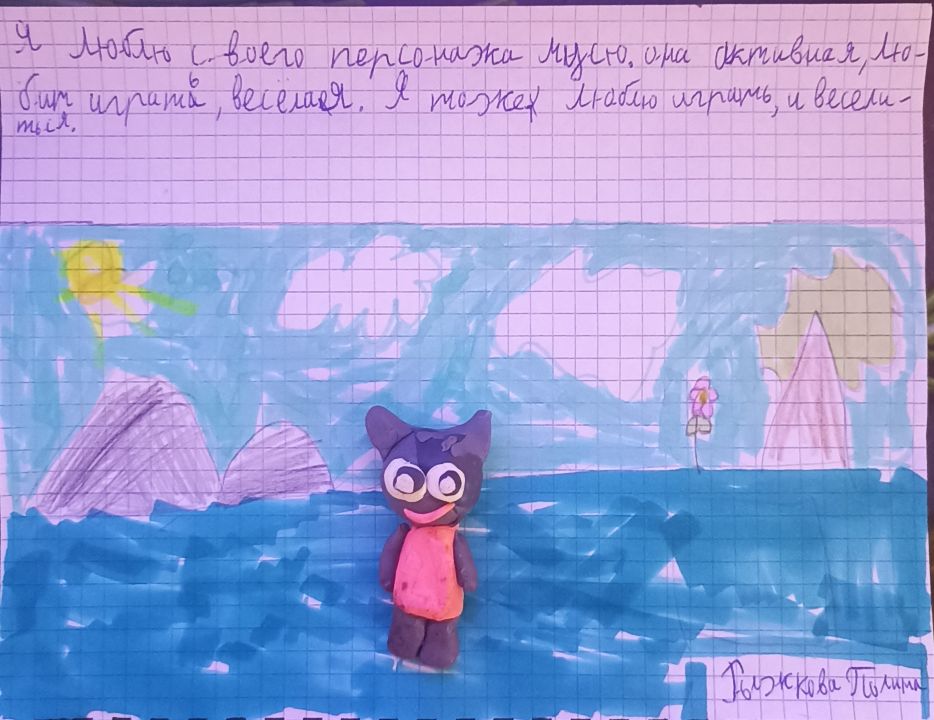 Я люблю своего персонажа мусю. она активная, лю-
бит играть, весёлая. Я тоже люблю играть, и весели-
ться.
Рыжкова Полина